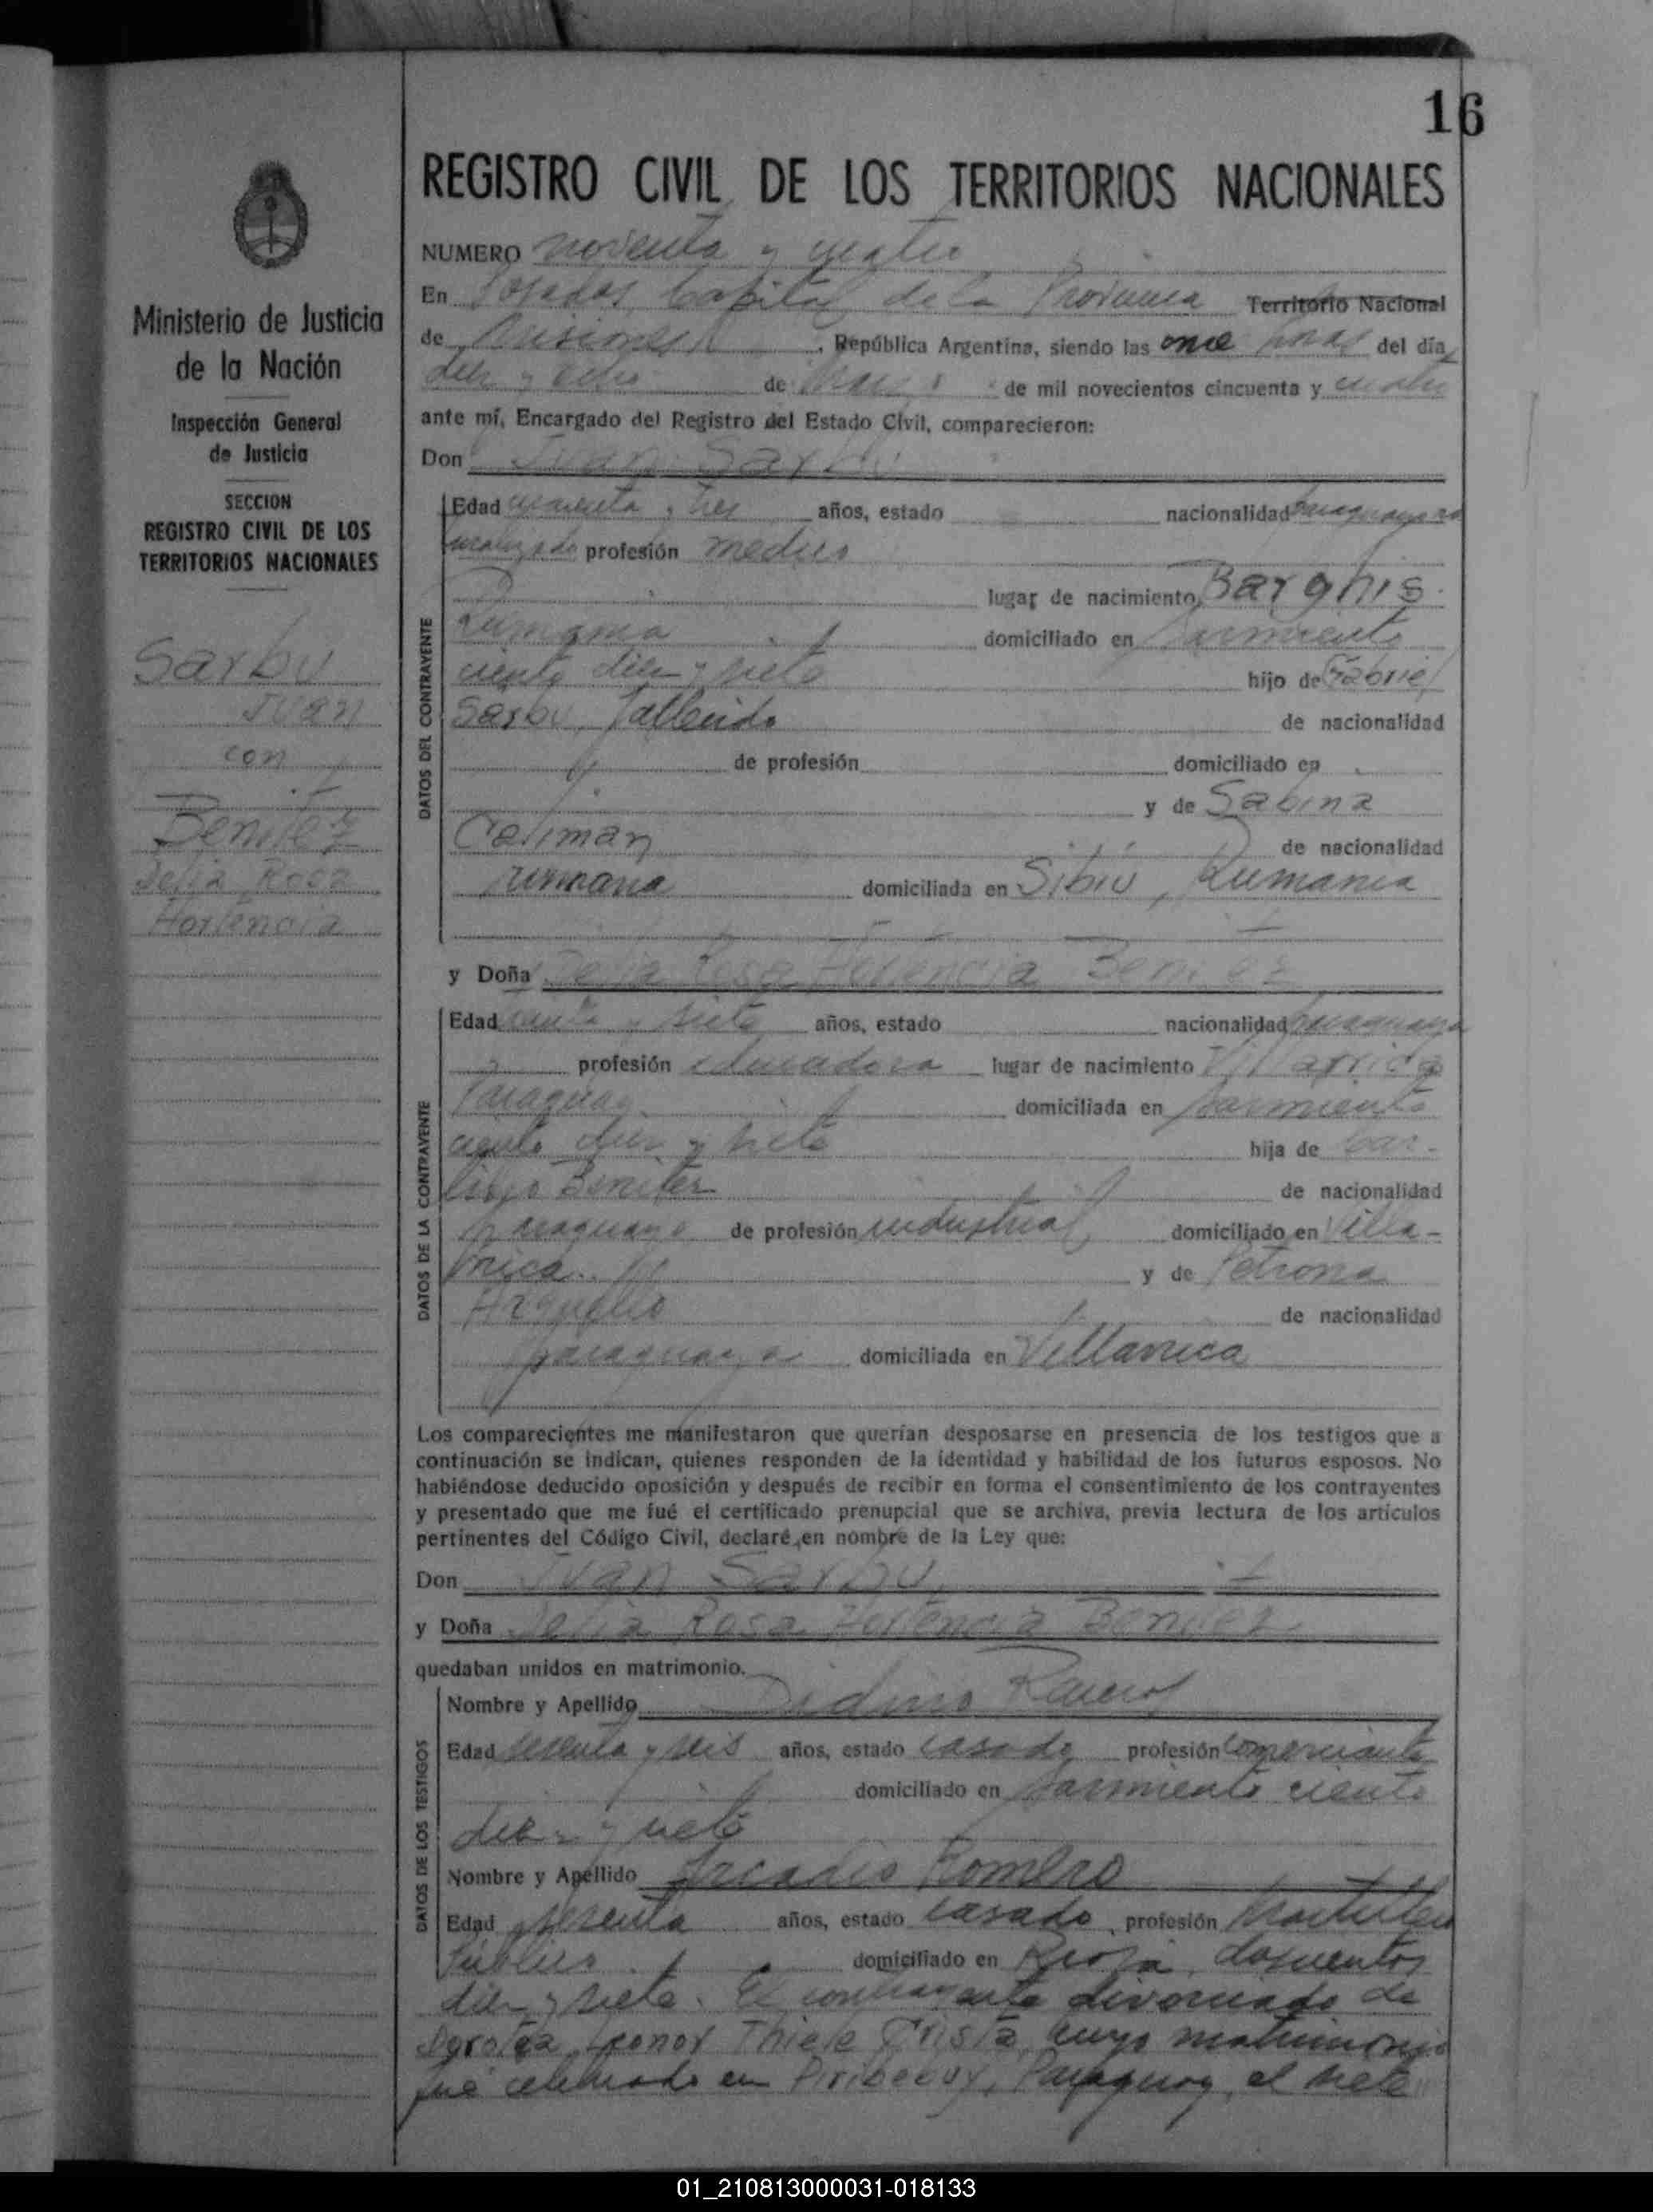 16
REGISTRO CIVIL DE LOS TERRITORIOS NACIONALES
Ministerio de Justicia
de la Nación
Inspección General
de Justicia
SECCION
REGISTRO CIVIL DE LOS
TERRITORIOS NACIONALES
Sarbu
Ivan
con
Benitez
Delia Rosa
Hortencia
NUMERO noventa y cuatro
En Posadas, Capital de la Provincia Territorio Nacional
de Misiones, República Argentina, siendo las once horas del día
diez y ocho de Marzo de mil novecientos cincuenta y cuatro
ante mí, Encargado del Registro del Estado Civil, comparecieron:
Don Ivan Sarbu
DATOS DEL CONTRAYENTE
Edad cuarenta y tres años, estado nacionalidad paraguayo na
profesión medico
lugar de nacimiento Barghis
Rumania domiciliado en Sarmiento
ciento diez y siete hijo de Gabriel
Sarbu, fallecido de nacionalidad
de profesión domiciliado en
y de Sabina
Caliman de nacionalidad
rumana domiciliada en Sibiu, Rumania
y Doña Delia Rosa Hortencia Benitez
DATOS DE LA CONTRAYENTE
Edad veinte y siete años, estado nacionalidad paraguaya
profesión educadora lugar de nacimiento Villarrica
Paraguay domiciliada en Sarmiento
ciento diez y siete hija de
Benitez de nacionalidad
paraguayo de profesión industrial domiciliado en Villa-
rrica y de Petrona
Arguello de nacionalidad
paraguaya domiciliada en Villarrica
Los comparecientes me manifestaron que querían desposarse en presencia de los testigos que a
continuación se indican, quienes responden de la identidad y habilidad de los futuros esposos. No
habiéndose deducido oposición y después de recibir en forma el consentimiento de los contrayentes
y presentado que me fué el certificado prenupcial que se archiva, previa lectura de los artículos
pertinentes del Código Civil, declaré en nombre de la Ley que:
Don Ivan Sarbu
y Doña Delia Rosa Hortencia Benitez
quedaban unidos en matrimonio.
DATOS DE LOS TESTIGOS
Nombre y Apellido
Edad sesenta y seis años, estado casado profesión comerciante
domiciliado en Sarmiento ciento
diez y siete
Nombre y Apellido Arcadio Romero
Edad sesenta años, estado casado profesión Martillero
Público domiciliado en Rioja doscientos
diez y siete. El contrayente divorciado de
Dorotea Leonor Thiele Crista, cuyo matrimonio
fué celebrado en Piribebuy, Paraguay, el siete
01_210813000031-018133